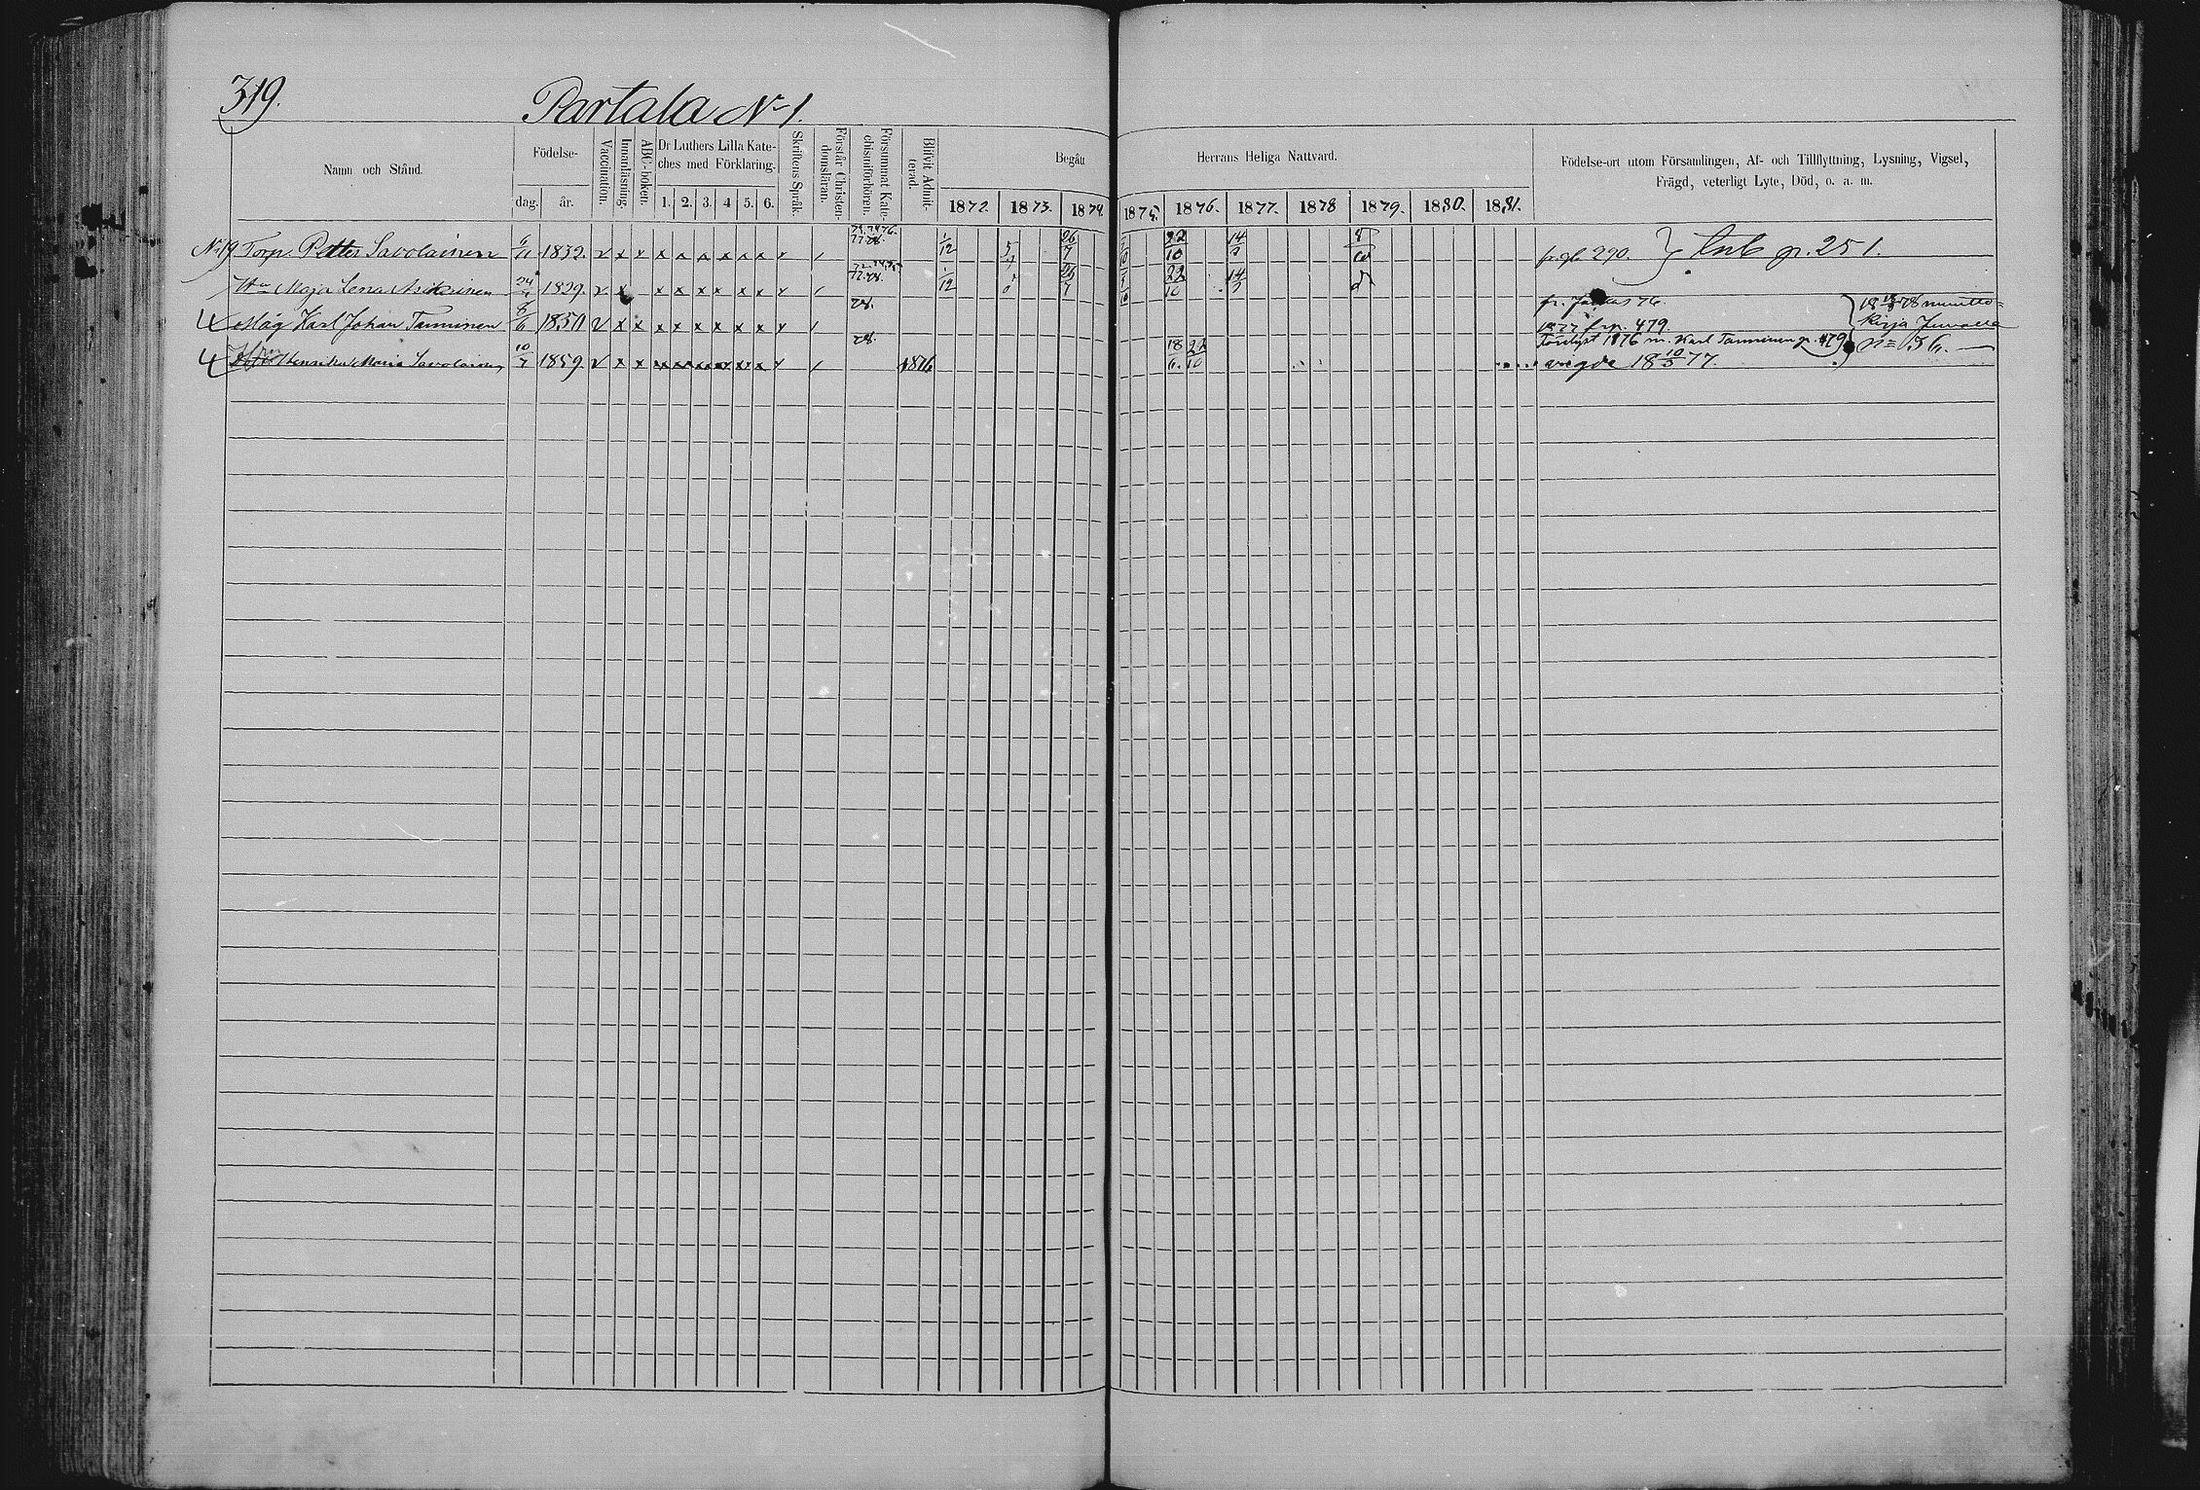 319.
Partala No 1.
Namn och Stånd.
Födelse-
dag.
år.
Vaccination.
Innanläsning.
ABC-boken.
Dr Luthers Lilla Kate-
ches med Förklaring.
1. 2. 3. 4 5. 6.
Skriftens Språk.
Förstår Christen-
domsläran.
Försummat Kate-
chismiförhören.
Blifvit Admit-
terad.
Begått Herrans Heliga Nattvard.
1872. 1873. 1874. 1875. 1876. 1877. 1878 1879. 1880. 1881.
Födelse-ort utom Församlingen, Af- och Tillflyttning, Lysning, Vigsel,
Frägd, veterligt Lyte, Död, o. a. m.
No 19 Torp. Petter Savolainen 6/11 1832. 1/12 26/7 22/10 14
290. p. 251.
Hu Maja Lena Asikainen 1829. 1/12 26/7 22/10 14
fr. 76.
Måg Karl Johan Tanninen 8/6 1850 78.
1877 fr. p. 479.
18 78 muutto-
kirja
Henrika Maria Savolainen 10 1859. 78. 1876 18/6. 22/10
1876 m. Karl Tanninen p. 479
vigde 18 10/3 77.